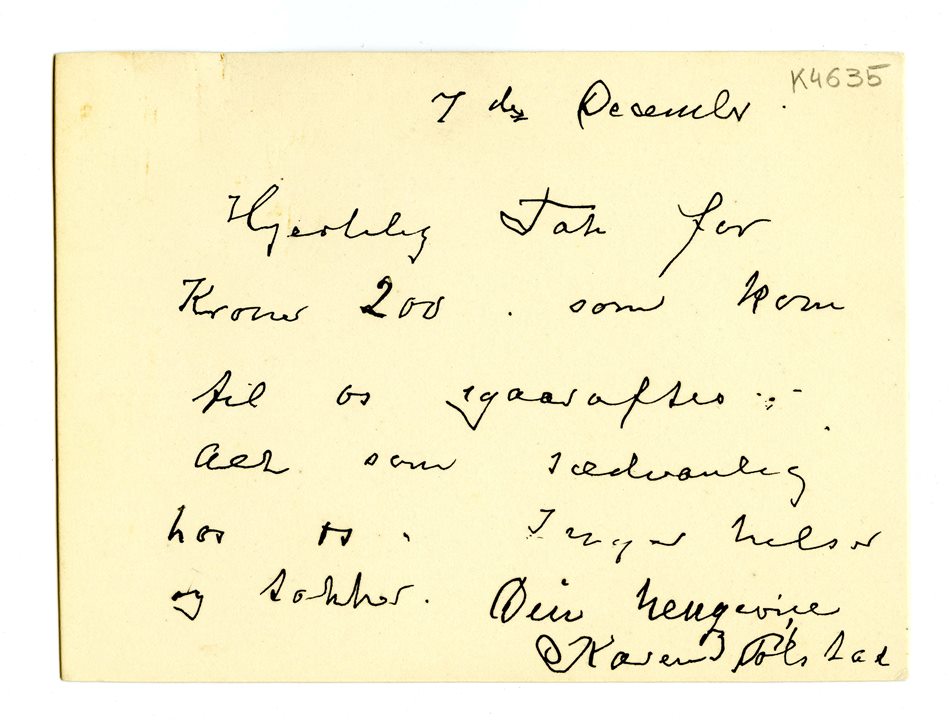 K4635
7 des Desember.
Hjertelig Tak for
Kroner 200. som kom
til os igaaraftes
Alt som sædvanlig
hos os. Inger hilser
og takker. Din hengivne
Karen Tolstad